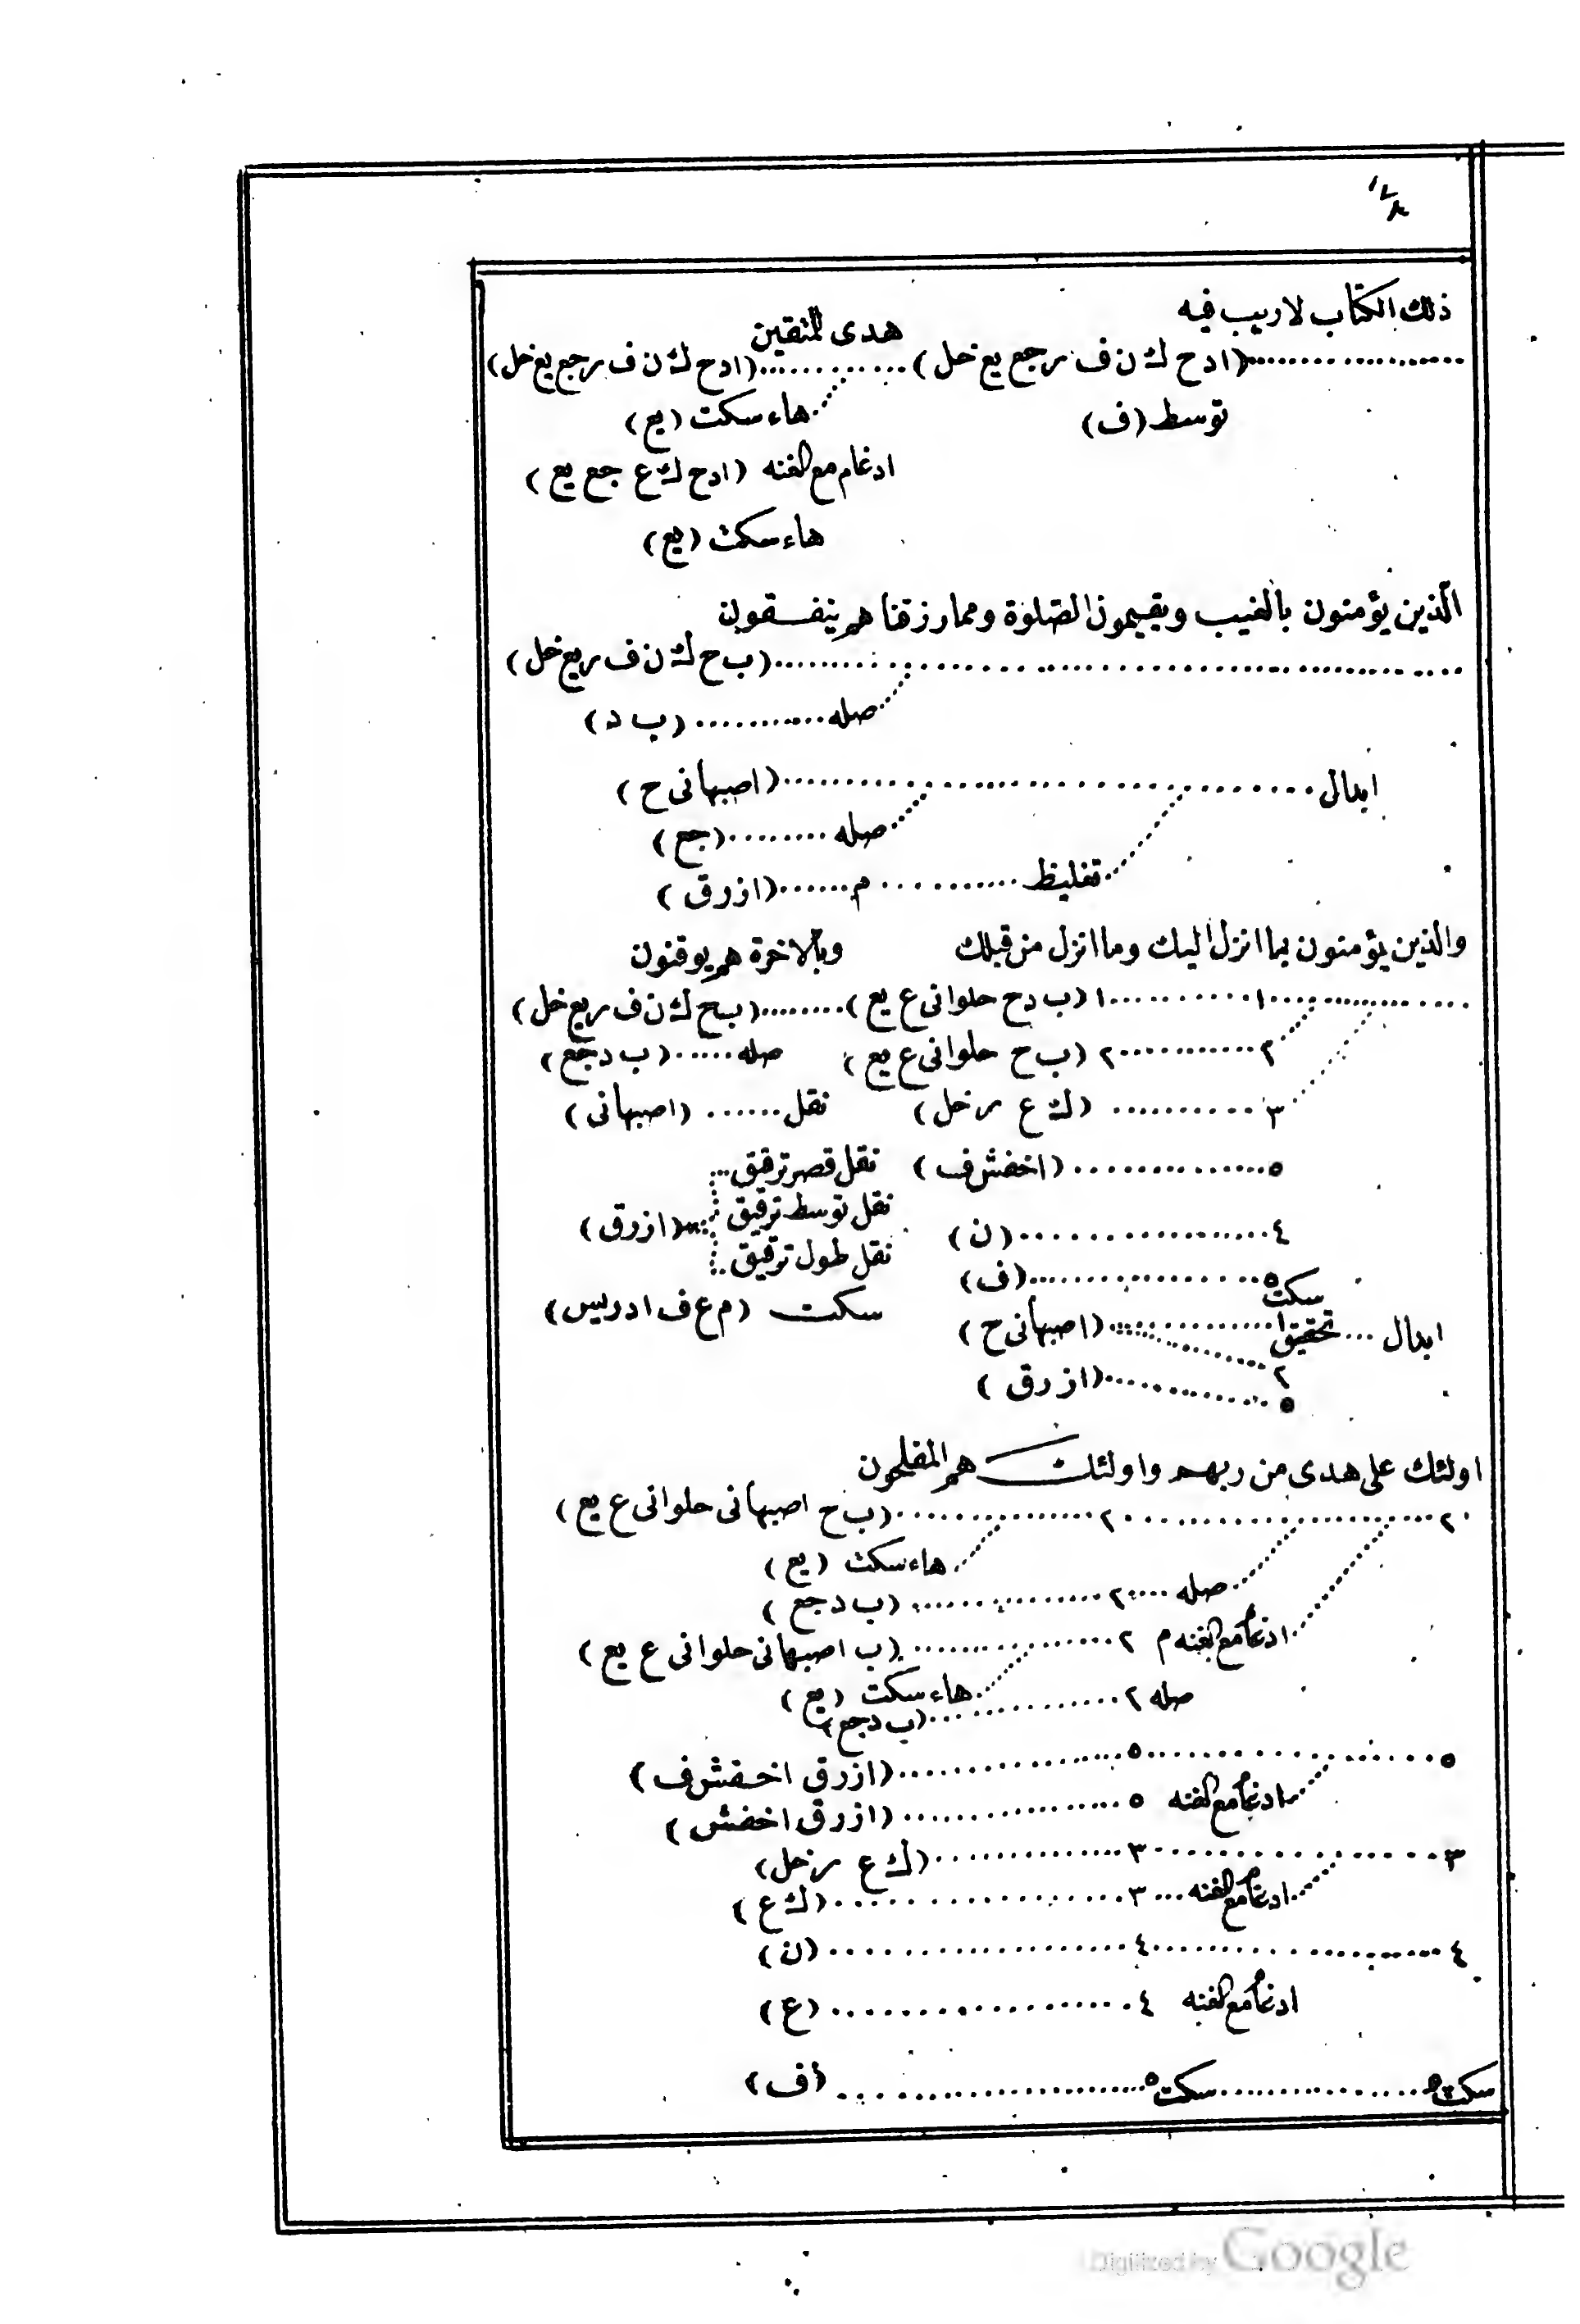 ذلك الكتاب لا ريب فيه هدى للمتقين
.....(ا د ح ك ن ف ر جع يع خل) .....(ا د ح ك ن ف ر جع يع خل)
توسط (ف) هاء سكت (يع)
ادغام مع الغنه (ا د ح ك ع جع يع)
هاء سكت (يع)
الذين يؤمنون بالغيب ويقيمون الصلوة ومما رزقنا هم ينفقون
.....(ب ح ك ن ف ر يع خل)
صله .....(ب د)
ابدال .....(اصبهانى ح)
صله .....(جع)
تغليظ .....م.....(ازرق)
والذين يؤمنون بما انزل اليك وما انزل من قبلك وبالاخرة هم يوقنون
.....١.....١ (ب د ح حلوانى ع يع) .....(ب ح ك ن ف ر يع خل)
٢.....٢ (ب ح حلوانى ع يع) صله .....(ب د جع)
٣..... (ك ع ر خل) نقل ..... (اصبهانى)
٥.....(اخفش ف) نقل قصر ترقيق...
نقل توسط ترقيق .....(ازرق)
٤.....(ن) نقل طول ترقيق...
سكت ٥.....(ف)
سكت (م ع ف ادريس)
ابدال ... تحقيق ١.....(اصبهانى ح)
٢
٥.....(ازرق)
اولئك على هدى من ربهم واولئك هم المفلحون
٢.....٢.....(ب ح اصبهانى حلوانى ع يع)
هاء سكت (يع)
صله ....٢.....(ب د جع)
ادغام مع الغنه م ٢.....(ب اصبهانى حلوانى ع يع)
هاء سكت (يع)
صله ٢.....(ب د جع)
٥.....٥.....(ازرق اخفش ف)
ادغام مع الغنه ٥.....(ازرق اخفش)
٣.....٣.....(ك ع ر خل)
ادغام مع الغنه ...٣.....(ك ع)
٤.....٤.....(ن)
ادغام مع الغنه ٤.....(ع)
سكت ٥.....سكت ٥.....(ف)
Digitized by Google